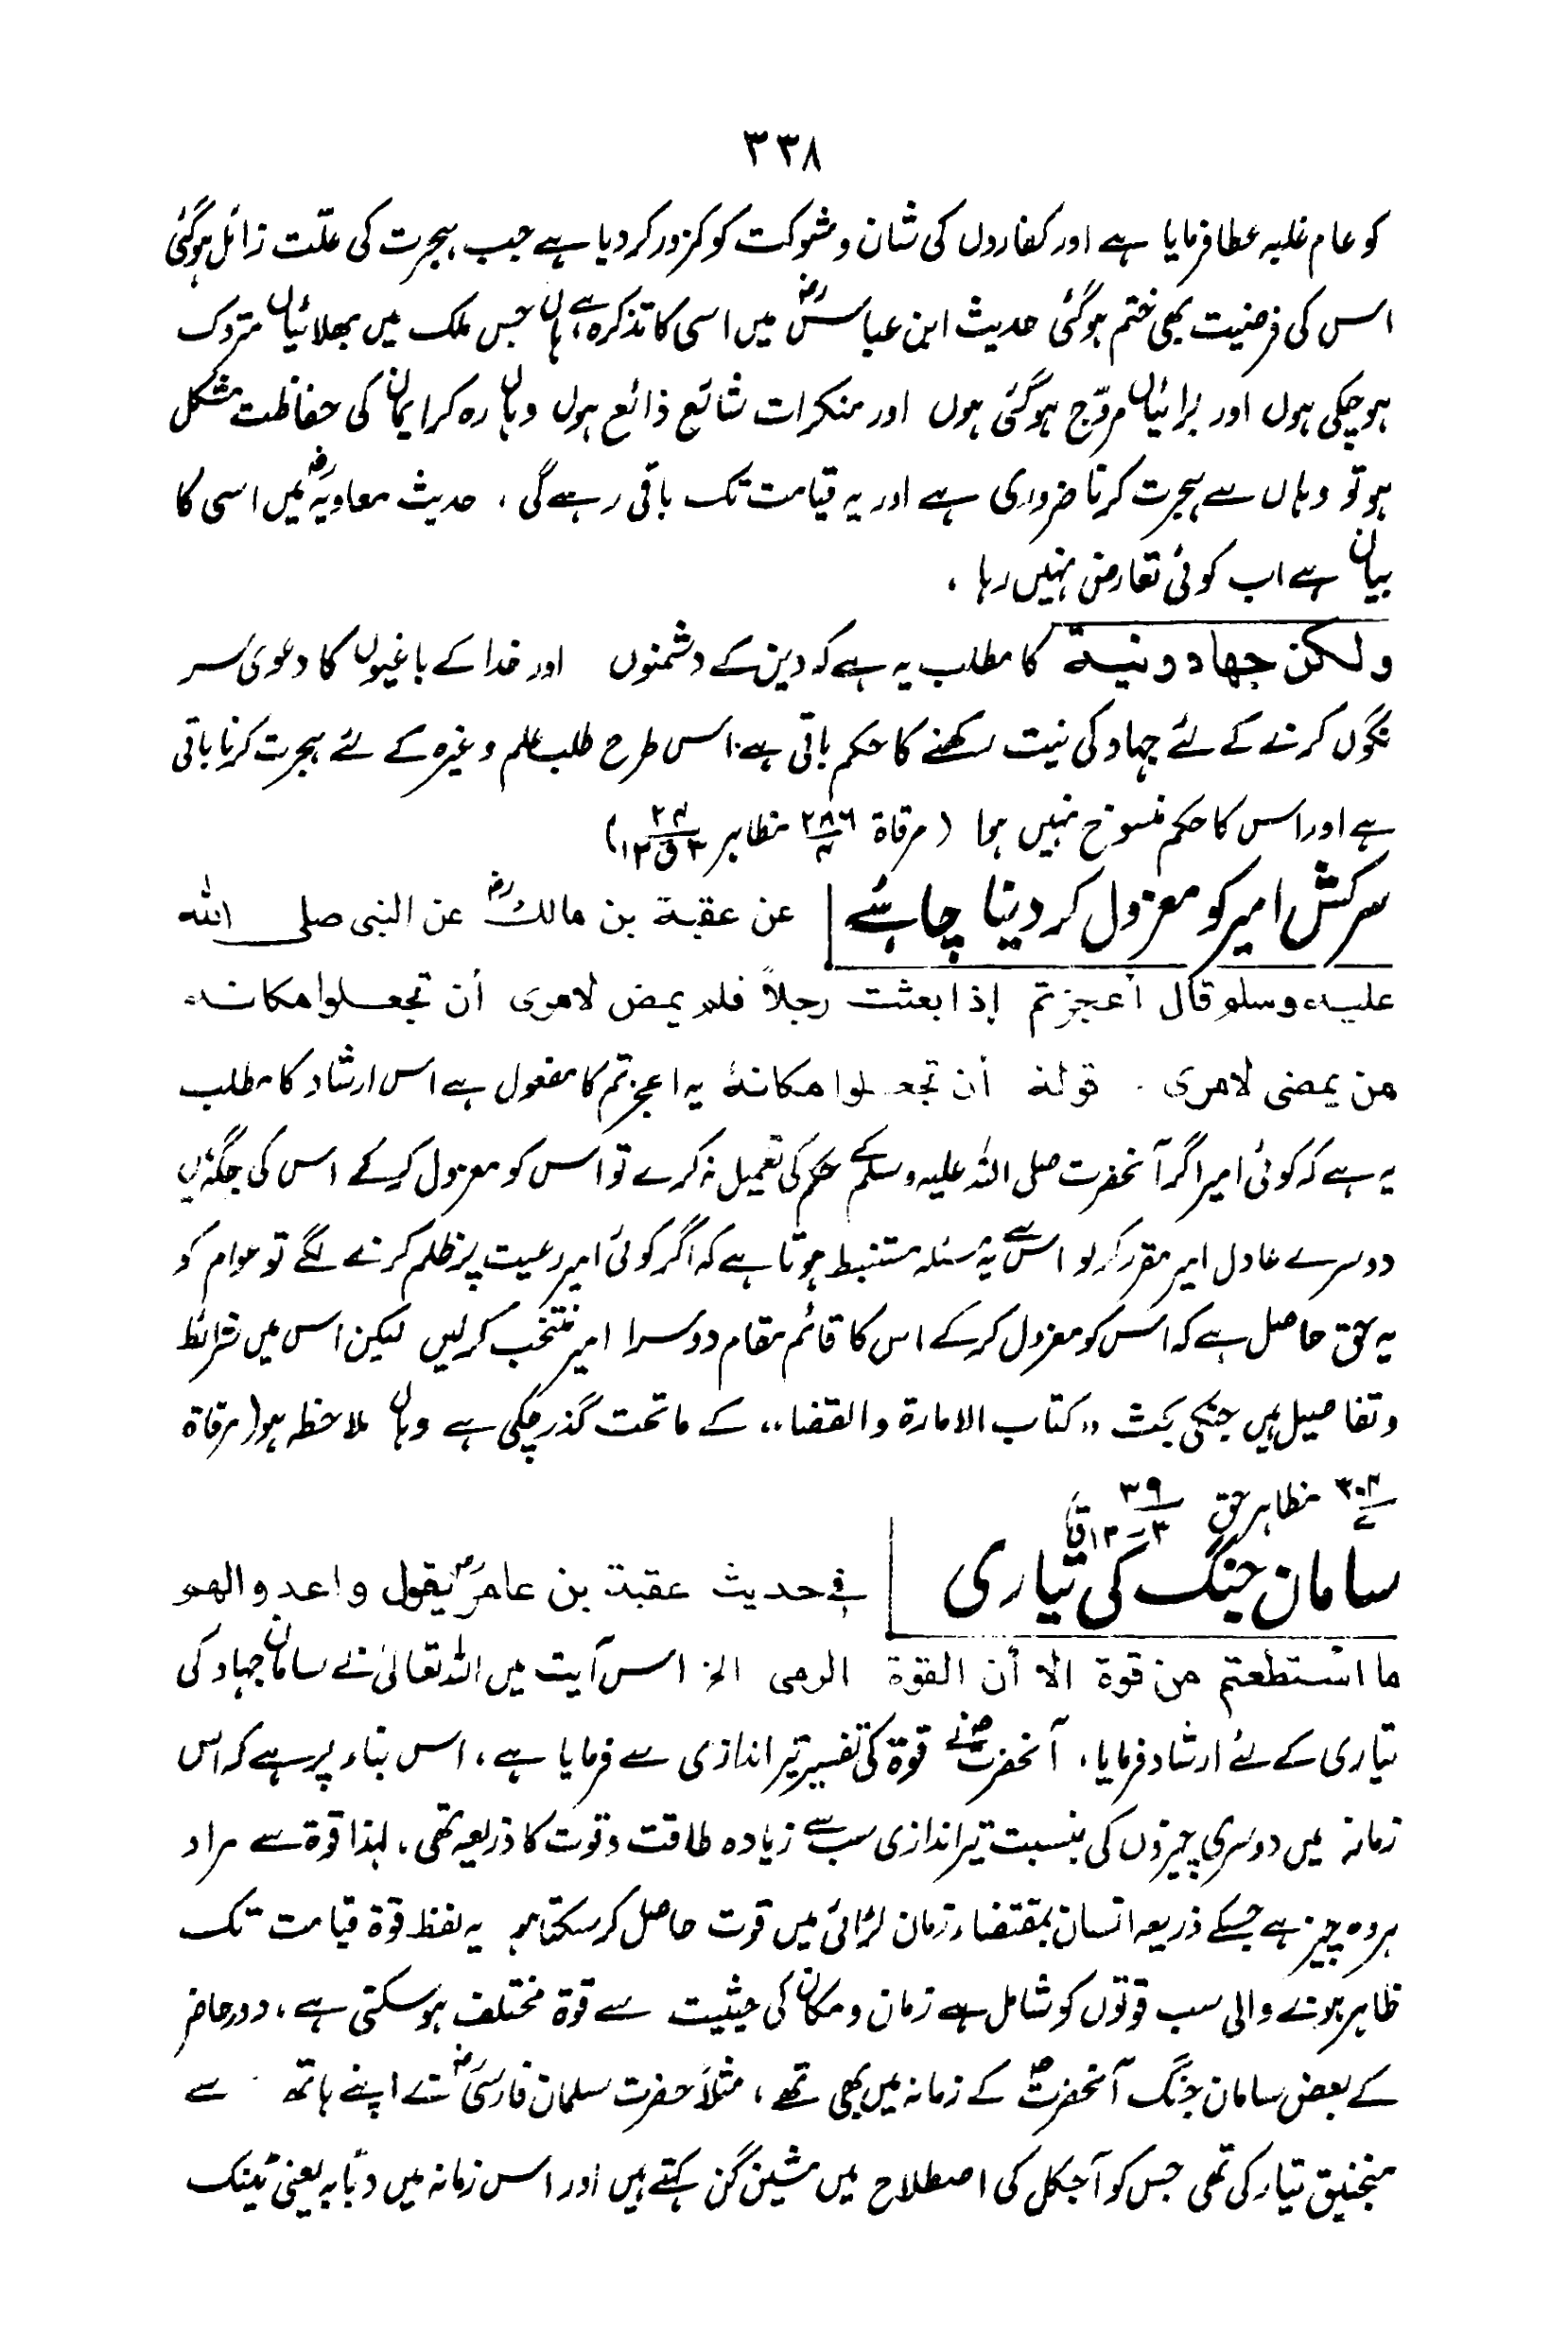 ۳۳۸
کو عام غلبہ عطا فرمایا ہے اور کفاروں کی شان و شوکت کو کمزور کر دیا ہے جب ہجرت کی علّت زائل ہوگئی
اس کی فرضیت بھی ختم ہوگئی حدیث ابن عباسؓ میں اسی کا تذکرہ ہے، ہاں جس ملک میں بھلائیاں متروک
ہوچکی ہوں اور برائیاں مروّج ہوگئی ہوں اور منکرات شائع ذائع ہوں وہاں رہ کر ایمان کی حفاظت مشکل
ہو تو وہاں سے ہجرت کرنا ضروری ہے اور یہ قیامت تک باقی رہے گی، حدیث معاویہؓ میں اسی کا
بیان ہے اب کوئی تعارض نہیں رہا ،
ولکن جھاد ونیۃ کا مطلب یہ ہے کہ دین کے دشمنوں اور خدا کے باغیوں کا دعویٰ سر
نگوں کرنے کے لئے جہاد کی نیت رکھنے کا حکم باقی ہے، اس طرح طلب علم وغیرہ کے لئے ہجرت کرنا باقی
ہے اور اس کا حکم منسوخ نہیں ہوا (مرقاۃ ۲۸۶/۷ مظاہر
سرکش امیر کو معزول کر دینا چاہئے | عن عقبۃ بن مالکؓ عن النبی صلی اللہ
علیہ وسلم قال أعجزتم إذا بعثت رجلاً فلم یمض لامری أن تجعلوا مکانہ
من یمضی لامری ۔ قولہ أن تجعلوا مکانہٗ یہ اعجزتم کا مفعول ہے اس ارشاد کا مطلب
یہ ہے کہ کوئی امیر اگر آنحضرت صلی اللہ علیہ وسلم کے حکم کی تعمیل نہ کرے تو اس کو معزول کرکے اس کی جگہ میں
دوسرے عادل امیر مقرر کرلو اس سے یہ مسئلہ مستنبط ہوتا ہے کہ اگر کوئی امیر رعیت پر ظلم کرنے لگے تو عوام کو
یہ حق حاصل ہے کہ اس کو معزول کرکے اس کا قائم مقام دوسرا امیر منتخب کرلیں لیکن اس میں شرائط
و تفاصیل ہیں جنکی بحث ,,کتاب الامارۃ والقضاء،، کے ماتحت گذر چکی ہے وہاں ملاحظہ ہو (مرقاۃ
۳۰۲/۷ مظاہر حق ۳۹/
سامان جنگ کی تیاری | فی حدیث عقبۃ بن عامرؓ یقول واعدوا لھم
ما استطعتم من قوۃ الا أن القوۃ الرمی الخ اس آیت میں اللہ تعالیٰ نے سامان جہاد کی
تیاری کے لئے ارشاد فرمایا، آنحضرتؐ نے قوۃ کی تفسیر تیر اندازی سے فرمایا ہے، اس بناء پر ہے کہ اس
زمانہ میں دوسری چیزوں کی بنسبت تیر اندازی سب سے زیادہ طاقت و قوت کا ذریعہ تھی، لہذا قوۃ سے مراد
ہر وہ چیز ہے جسکے ذریعہ انسان بمقتضاء زمان لڑائی میں قوت حاصل کر سکتا ہو یہ لفظ قوۃ قیامت تک
ظاہر ہونے والی سب قوتوں کو شامل ہے زمان و مکان کی حیثیت سے قوۃ مختلف ہوسکتی ہے، دور حاضر
کے بعض سامان جنگ آنحضرتؐ کے زمانہ میں بھی تھے، مثلاً حضرت سلمان فارسیؓ نے اپنے ہاتھ سے
منجنیق تیار کی تھی جس کو آجکل کی اصطلاح میں مشین گن کہتے ہیں اور اس زمانہ میں دبّابہ یعنی ٹینک